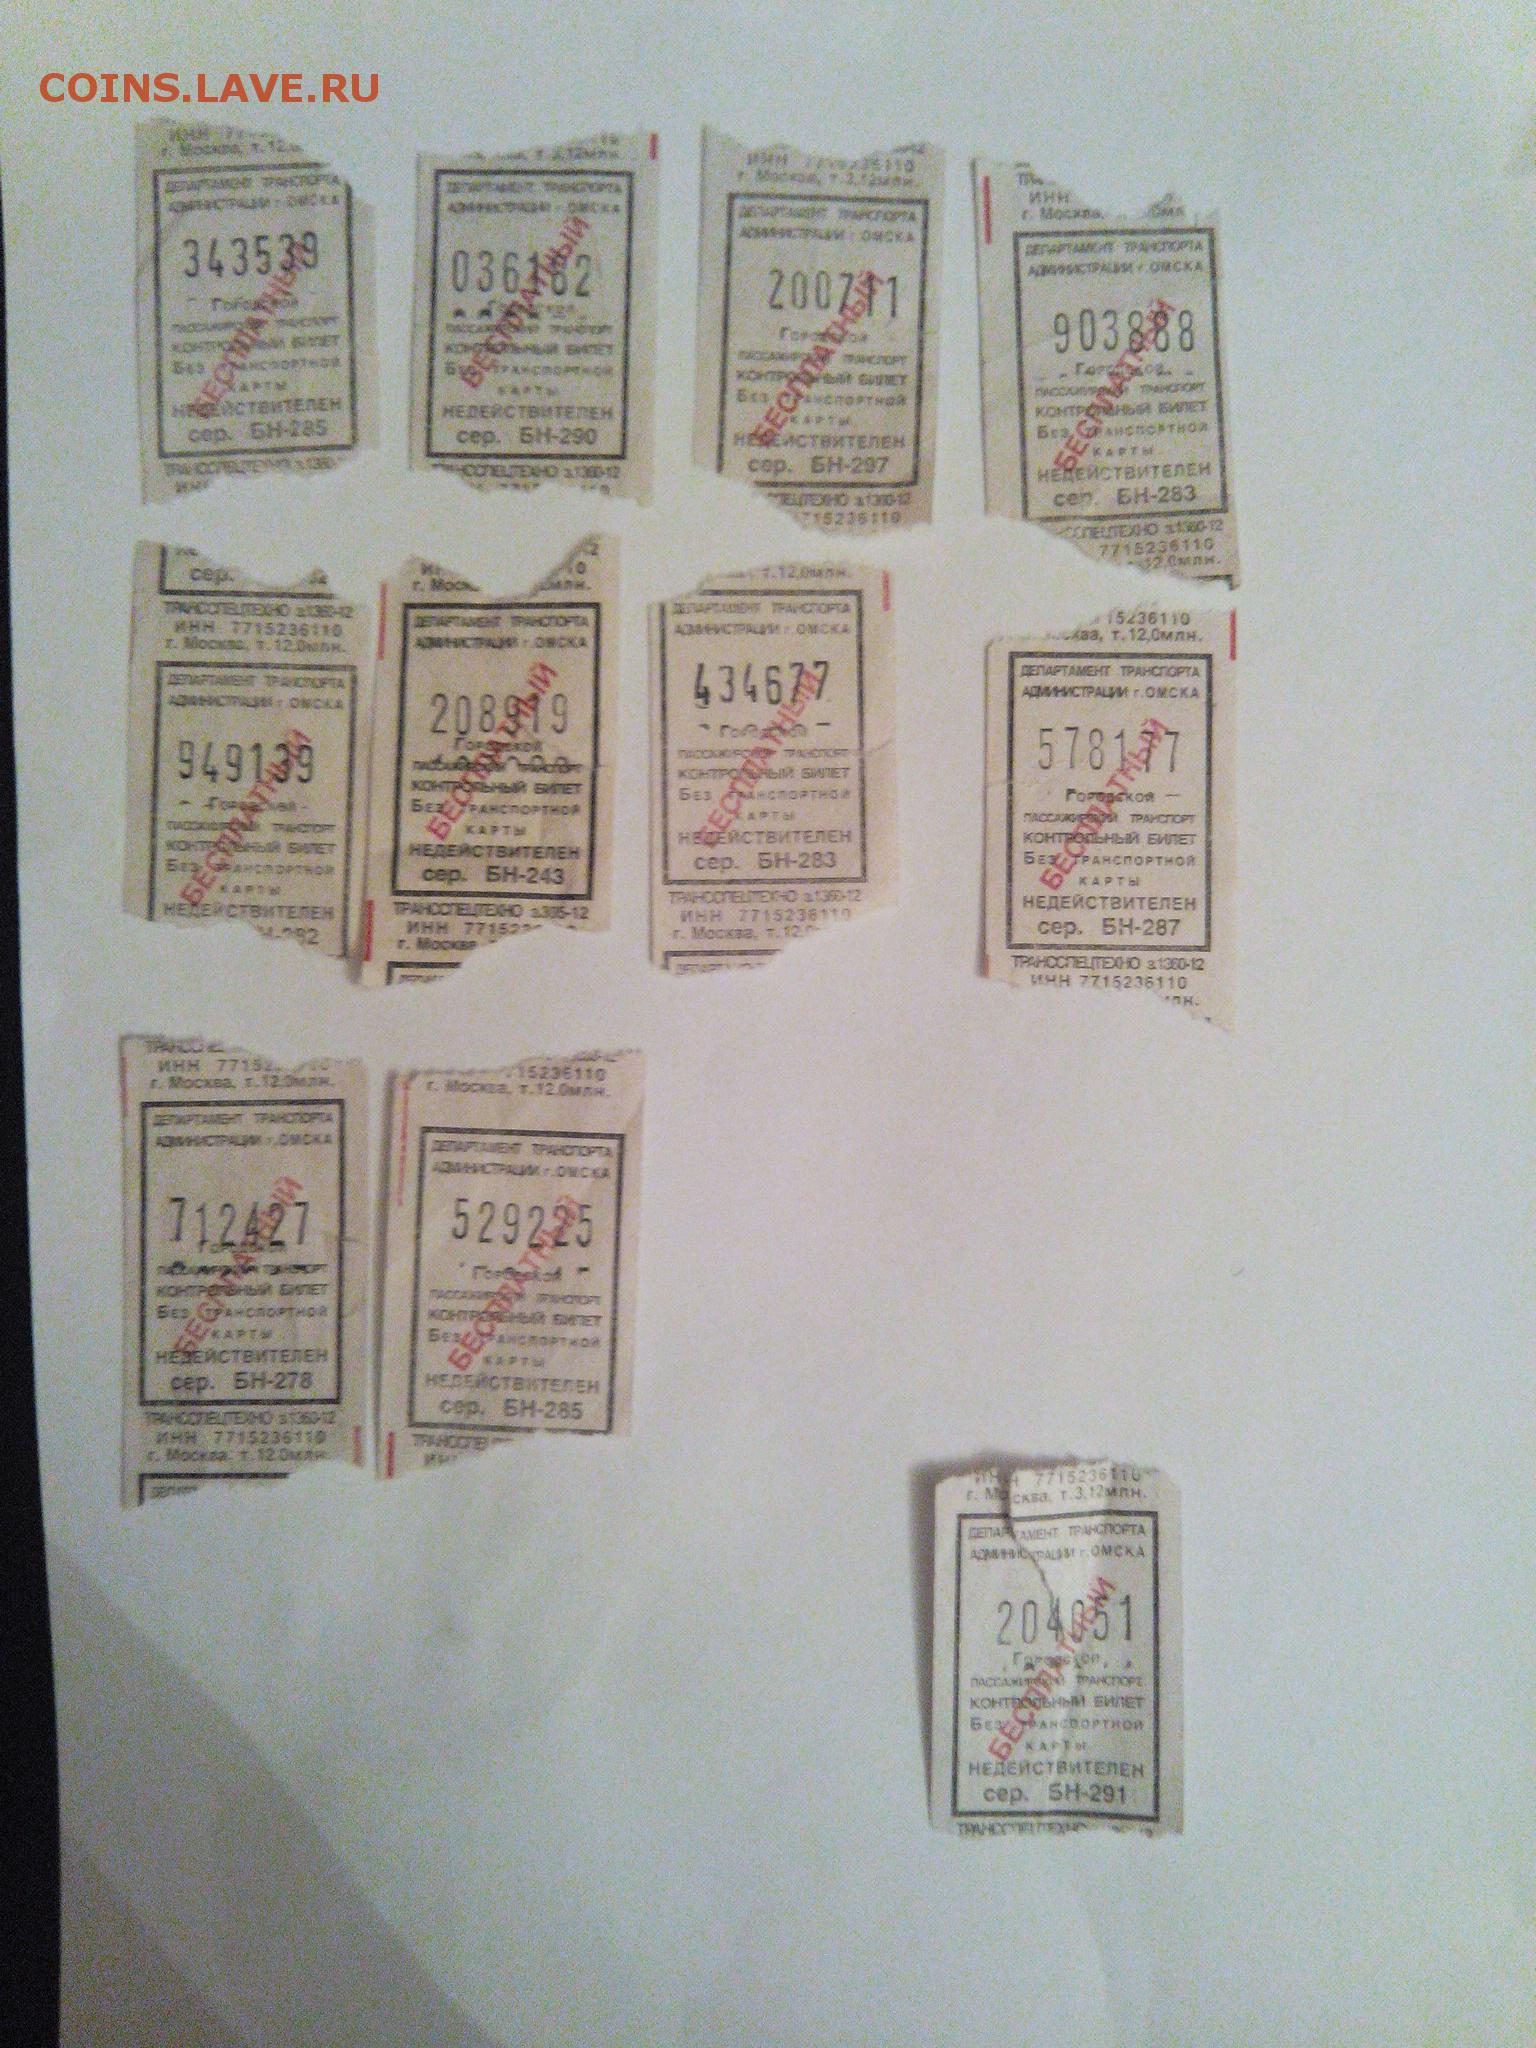 COINS.LAVE.RU
г. Москва, т.12,
ДЕПАРТАМЕНТ ТРАНСПОРТА
АДМИНИСТРАЦИИ г.ОМСКА
343539
Городской
ПАССАЖИРСКИЙ ТРАНСПОРТ
КОНТРОЛЬНЫЙ БИЛЕТ
БЕЗ ТРАНСПОРТНОЙ
КАРТЫ
НЕДЕЙСТВИТЕЛЕН
сер. БН-285
БЕСПЛАТНЫЙ
ТРАНССПЕЦТЕХНО з.1360-
12млн.
ДЕПАРТАМЕНТ ТРАНСПОРТА
АДМИНИСТРАЦИИ г.ОМСКА
036182
Городской
ПАССАЖИРСКИЙ ТРАНСПОРТ
КОНТРОЛЬНЫЙ БИЛЕТ
БЕЗ ТРАНСПОРТНОЙ
КАРТЫ
НЕДЕЙСТВИТЕЛЕН
сер. БН-290
БЕСПЛАТНЫЙ
ТРАНССПЕЦТЕХНО з.1360-12
ИНН 7715236110
г. Москва, т.3,12млн.
ДЕПАРТАМЕНТ ТРАНСПОРТА
АДМИНИСТРАЦИИ г.ОМСКА
200711
Городской
ПАССАЖИРСКИЙ ТРАНСПОРТ
КОНТРОЛЬНЫЙ БИЛЕТ
БЕЗ ТРАНСПОРТНОЙ
КАРТЫ
НЕДЕЙСТВИТЕЛЕН
сер. БН-297
БЕСПЛАТНЫЙ
СПЕЦТЕХНО з.1360-12
7715236110
ИНН
г. Москва,
ДЕПАРТАМЕНТ ТРАНСПОРТА
АДМИНИСТРАЦИИ г.ОМСКА
903888
Городской
ПАССАЖИРСКИЙ ТРАНСПОРТ
КОНТРОЛЬНЫЙ БИЛЕТ
БЕЗ ТРАНСПОРТНОЙ
КАРТЫ
НЕДЕЙСТВИТЕЛЕН
сер. БН-283
БЕСПЛАТНЫЙ
СПЕЦТЕХНО з.1360-12
7715236110
12,0млн.
сер.
ТРАНССПЕЦТЕХНО з.1360-12
ИНН 7715236110
г. Москва, т.12,0млн.
ДЕПАРТАМЕНТ ТРАНСПОРТА
АДМИНИСТРАЦИИ г.ОМСКА
949139
Городской
ПАССАЖИРСКИЙ ТРАНСПОРТ
КОНТРОЛЬНЫЙ БИЛЕТ
БЕЗ ТРАНСПОРТНОЙ
КАРТЫ
НЕДЕЙСТВИТЕЛЕН
БЕСПЛАТНЫЙ
г. Моск млн.
ДЕПАРТАМЕНТ ТРАНСПОРТА
АДМИНИСТРАЦИИ г.ОМСКА
208919
Городской
ПАССАЖИРСКИЙ ТРАНСПОРТ
КОНТРОЛЬНЫЙ БИЛЕТ
БЕЗ ТРАНСПОРТНОЙ
КАРТЫ
НЕДЕЙСТВИТЕЛЕН
сер. БН-243
БЕСПЛАТНЫЙ
ТРАНССПЕЦТЕХНО з.305-12
ИНН 771523
г. Москва
т.12,0млн.
ДЕПАРТАМЕНТ ТРАНСПОРТА
АДМИНИСТРАЦИИ г.ОМСКА
434677
Городской
ПАССАЖИРСКИЙ ТРАНСПОРТ
КОНТРОЛЬНЫЙ БИЛЕТ
БЕЗ ТРАНСПОРТНОЙ
КАРТЫ
НЕДЕЙСТВИТЕЛЕН
сер. БН-283
БЕСПЛАТНЫЙ
ТРАНССПЕЦТЕХНО з.1360-12
ИНН 7715236110
г. Москва, т.12,0
15236110
т.12,0млн.
ДЕПАРТАМЕНТ ТРАНСПОРТА
АДМИНИСТРАЦИИ г.ОМСКА
578177
Городской
ПАССАЖИРСКИЙ ТРАНСПОРТ
КОНТРОЛЬНЫЙ БИЛЕТ
БЕЗ ТРАНСПОРТНОЙ
КАРТЫ
НЕДЕЙСТВИТЕЛЕН
сер. БН-287
БЕСПЛАТНЫЙ
ТРАНССПЕЦТЕХНО з.1360-12
ИНН 7715236110
млн.
ИНН 7715
г. Москва, т.12,0млн.
ДЕПАРТАМЕНТ ТРАНСПОРТА
АДМИНИСТРАЦИИ г.ОМСКА
712427
Городской
ПАССАЖИРСКИЙ ТРАНСПОРТ
КОНТРОЛЬНЫЙ БИЛЕТ
БЕЗ ТРАНСПОРТНОЙ
КАРТЫ
НЕДЕЙСТВИТЕЛЕН
сер. БН-278
БЕСПЛАТНЫЙ
ТРАНССПЕЦТЕХНО з.1360-12
ИНН 7715236110
г. Москва, т.12,0млн.
15236110
г. Москва, т.12,0млн.
ДЕПАРТАМЕНТ ТРАНСПОРТА
АДМИНИСТРАЦИИ г.ОМСКА
529225
Городской
ПАССАЖИРСКИЙ ТРАНСПОРТ
КОНТРОЛЬНЫЙ БИЛЕТ
БЕЗ ТРАНСПОРТНОЙ
КАРТЫ
НЕДЕЙСТВИТЕЛЕН
сер. БН-285
БЕСПЛАТНЫЙ
ИНН 7715236110
г. Москва, т.3,12млн.
ДЕПАРТАМЕНТ ТРАНСПОРТА
АДМИНИСТРАЦИИ г.ОМСКА
204051
Городской
ПАССАЖИРСКИЙ ТРАНСПОРТ
КОНТРОЛЬНЫЙ БИЛЕТ
БЕЗ ТРАНСПОРТНОЙ
КАРТЫ
НЕДЕЙСТВИТЕЛЕН
сер. БН-291
БЕСПЛАТНЫЙ
ТРАНССПЕЦТЕХНО